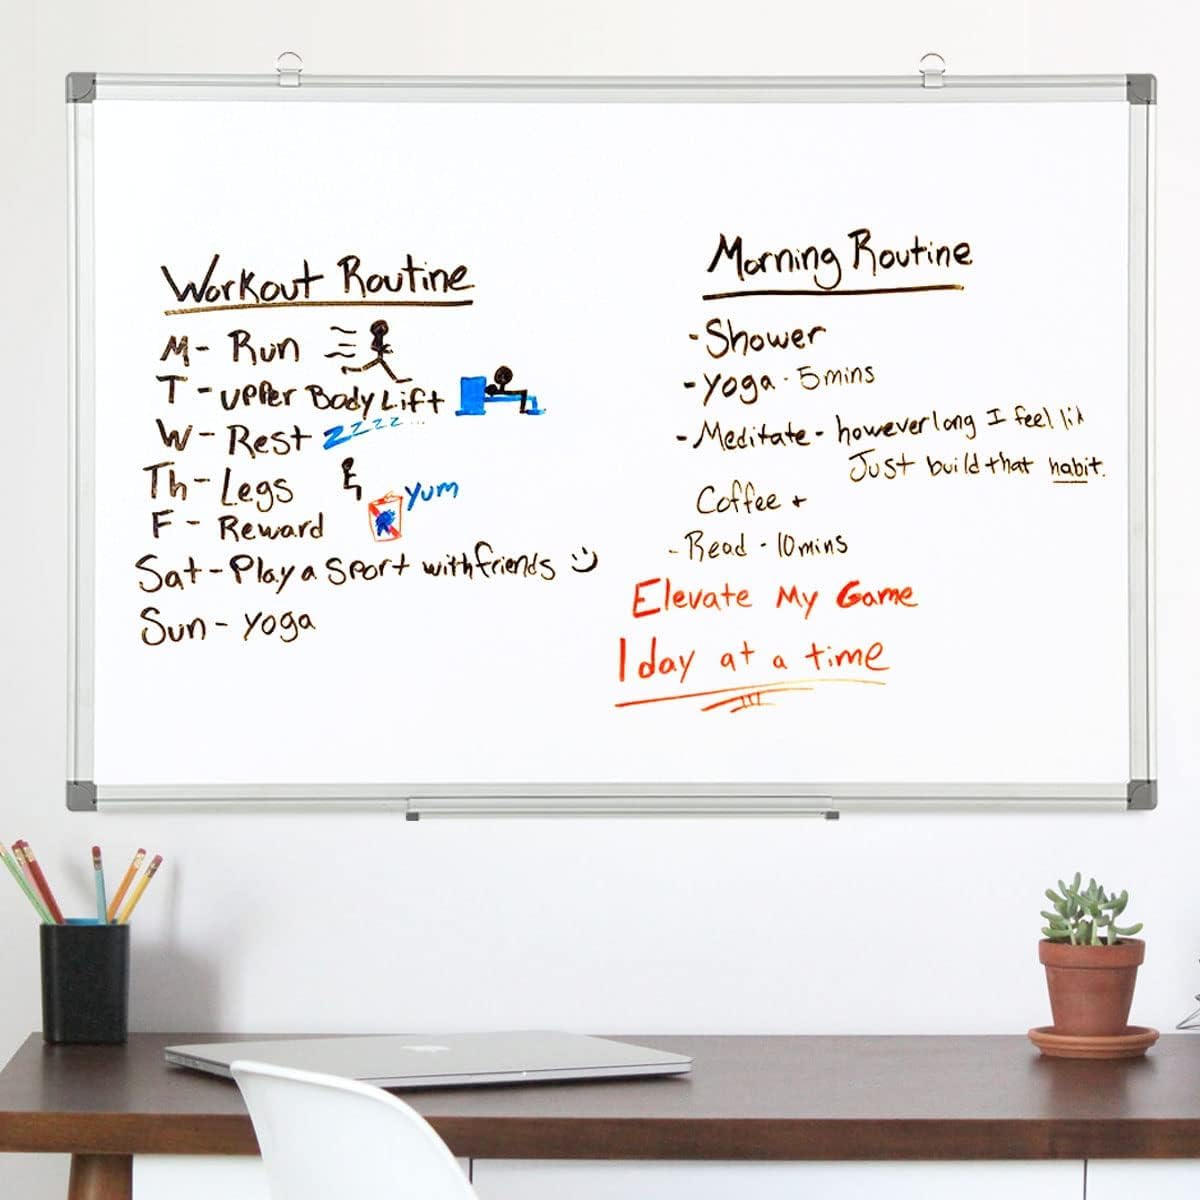 Workout Routine
M- Run
T - upper Body Lift
W - Rest zzzz...
Th - Legs
Yum
F - Reward
Sat - Play a sport with friends :)
Sun - yoga
Morning Routine
- Shower
- yoga - 5 mins
- Meditate - however long I feel lik
Just build that habit.
Coffee +
- Read - 10 mins
Elevate My Game
1 day at a time